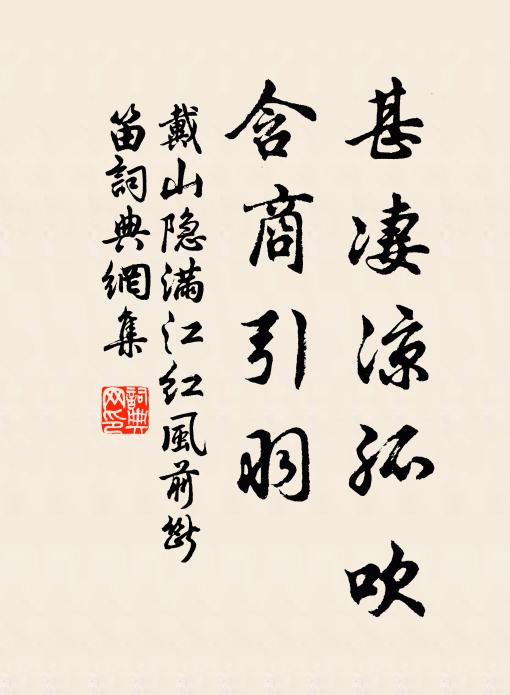 甚凄凉孤吹
含商引羽
戴山隐满江红風前断
笛詞典網集
詞典
网印